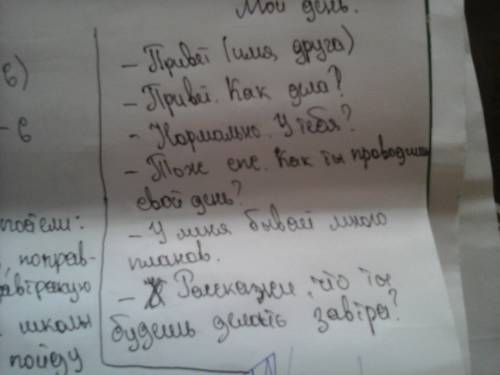 Мой день.
- Привет (имя друга)
- Привет. Как дела?
- Нормально. У тебя?
- Тоже. Как ты проводишь
свой день?
- У меня бывает много
планов.
- Расскажи, что ты
будешь делать завтра?
е)
- е
поправ-
школы
пойду